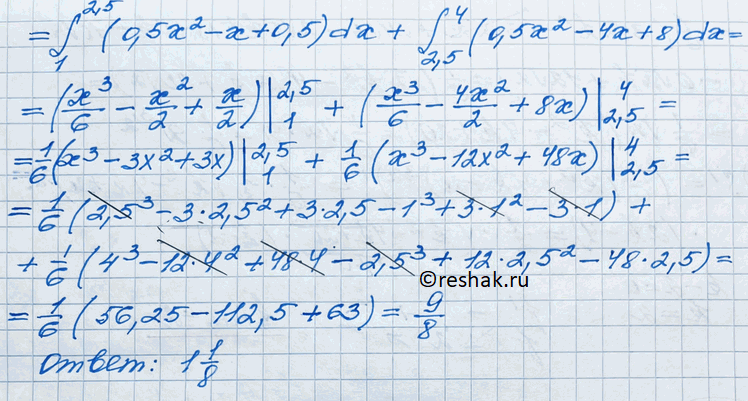 = ∫₁^2,5 (0,5x² − x + 0,5) dx + ∫_2,5^4 (0,5x² − 4x + 8) dx =
= (x³/6 − x²/2 + x/2) |₁^2,5 + (x³/6 − 4x²/2 + 8x) |_2,5^4 =
= 1/6 (x³ − 3x² + 3x) |₁^2,5 + 1/6 (x³ − 12x² + 48x) |_2,5^4 =
= 1/6 (2,5³ − 3·2,5² + 3·2,5 − 1³ + 3·1² − 3·1) +
+ 1/6 (4³ − 12·4² + 48·4 − 2,5³ + 12·2,5² − 48·2,5) =
©reshak.ru
= 1/6 (56,25 − 112,5 + 63) = 9/8
Ответ: 1 1/8